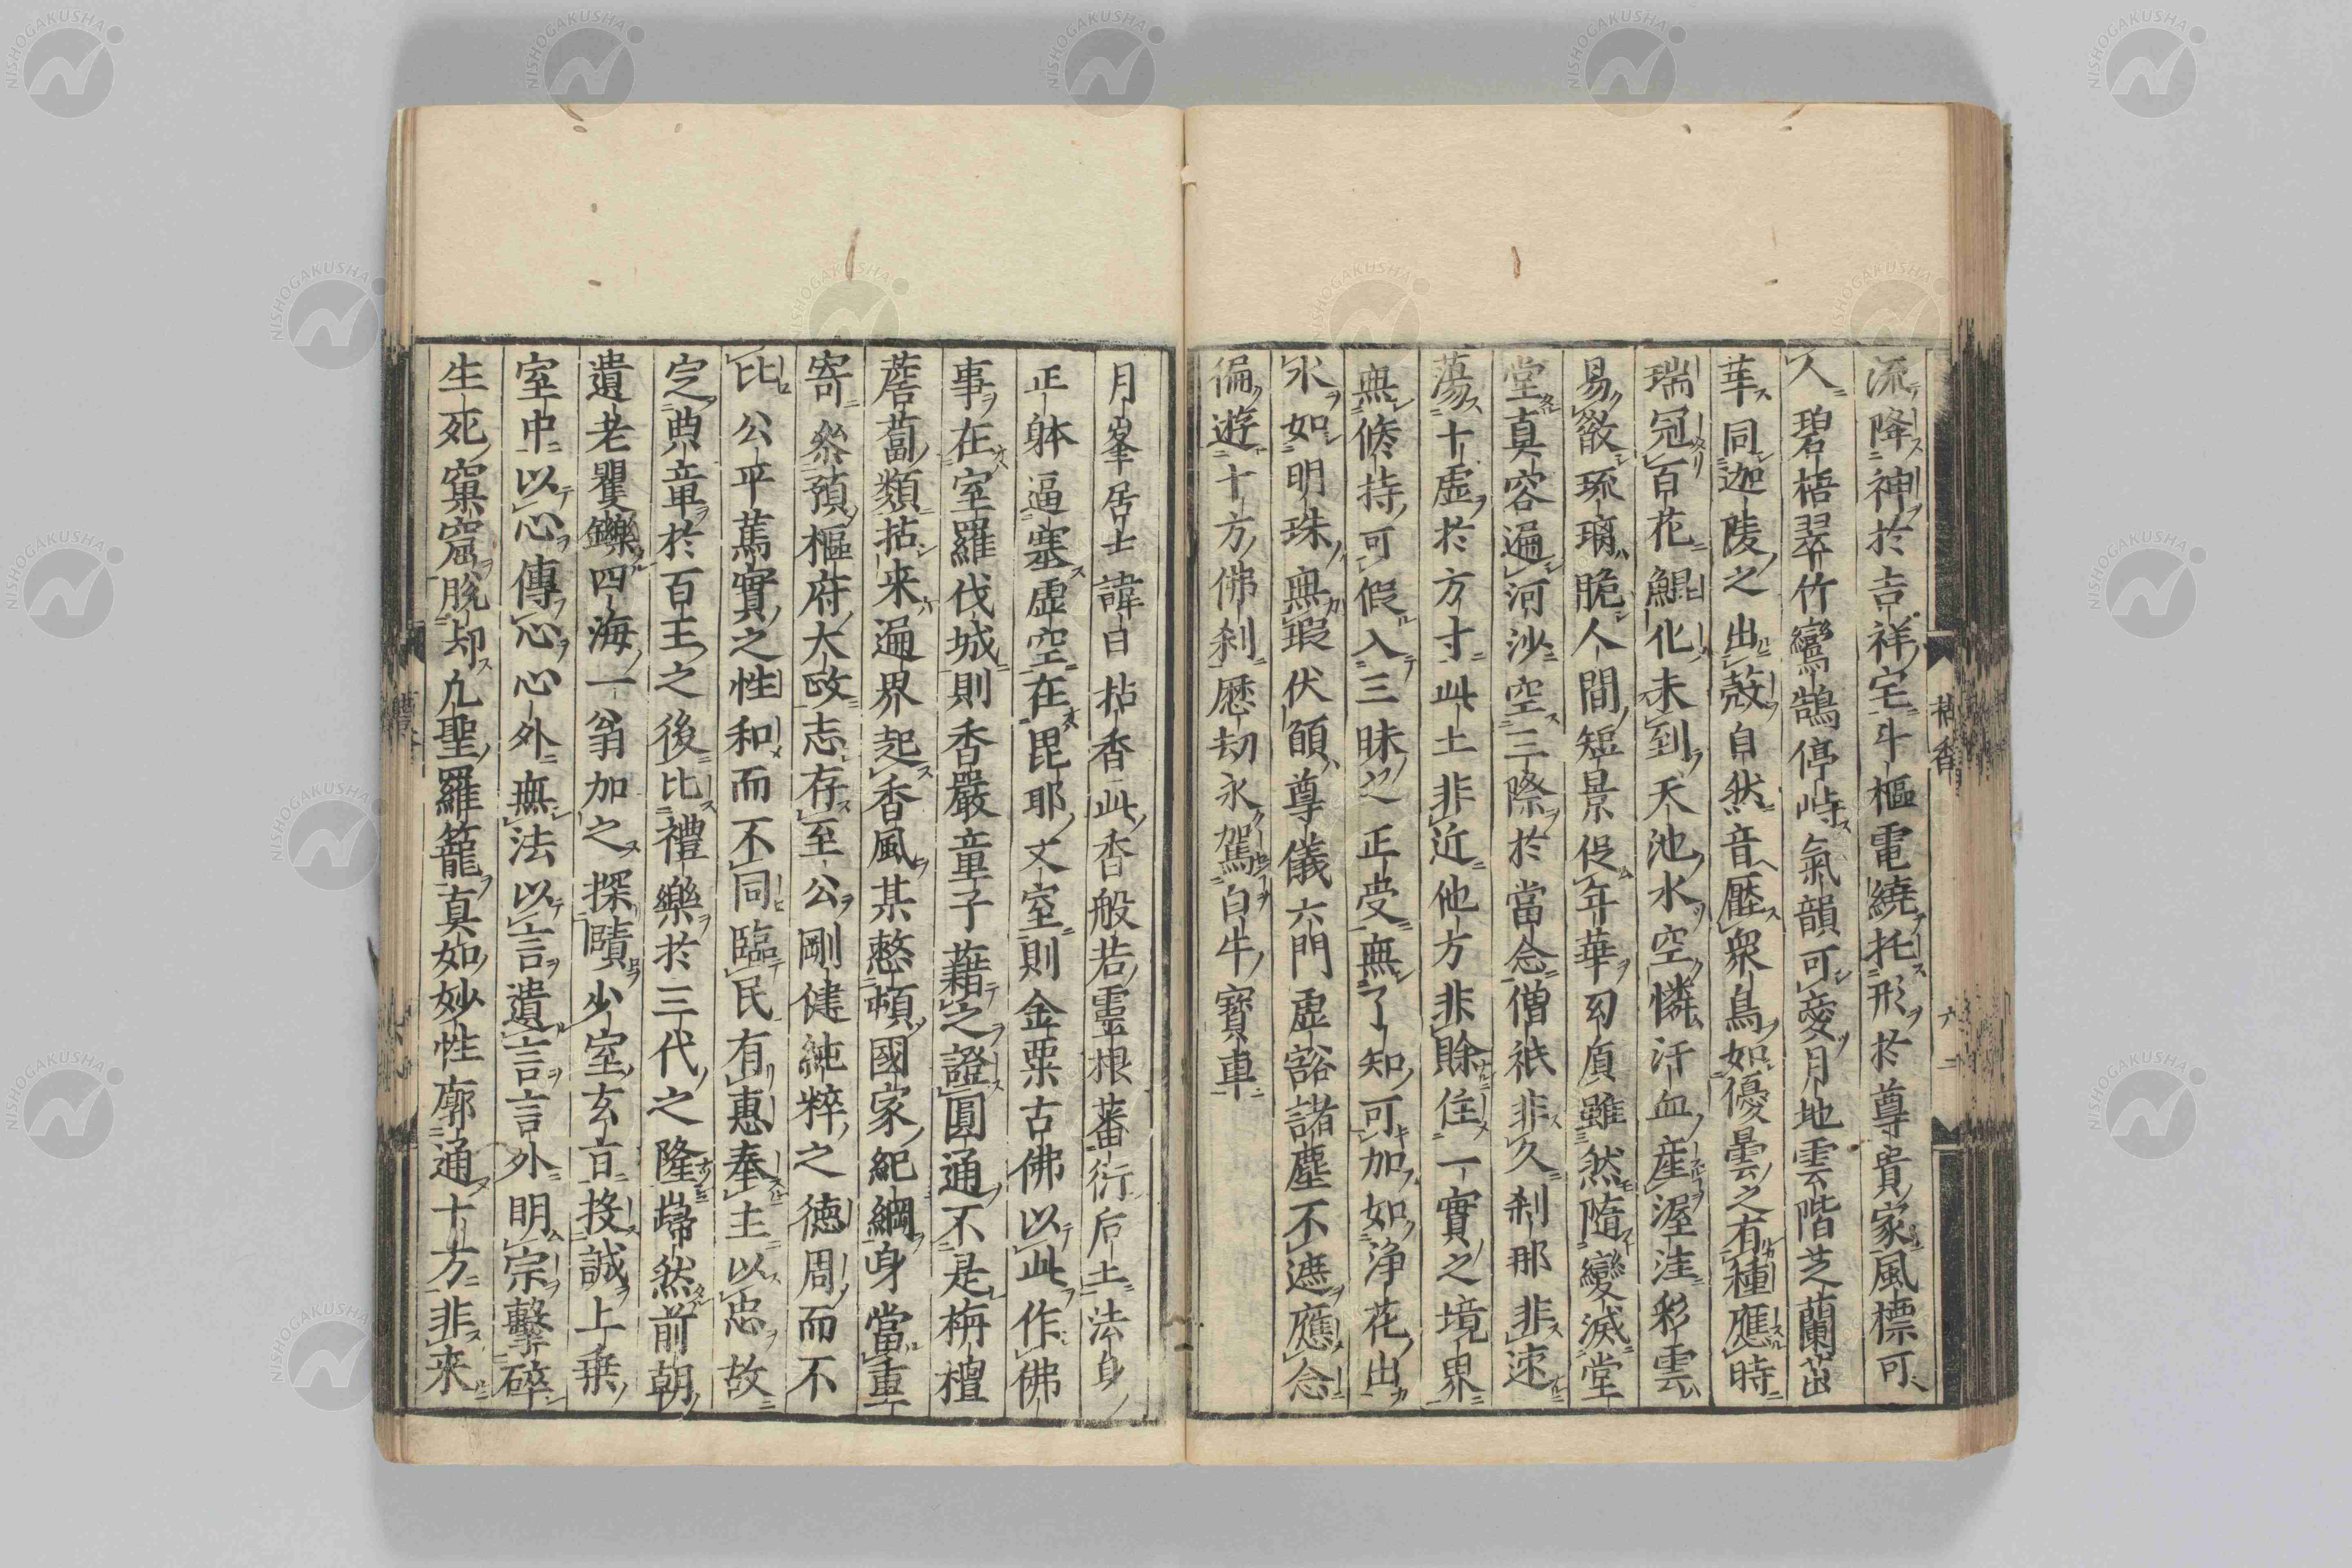 流降神於吉祥宅斗樞電繞托形於尊貴家風標可
人碧梧翠竹鸞鵠停峙氣韻可愛月地雲階芝蘭茁
華同迦陵之出殼自然音壓衆鳥如優曇之有種應時
瑞冠百花鯤化未到天池水空憐汗血産渥洼彩雲
易散琉璃脆人間短景促年華匆頂雖然隨變滅堂
堂真容遍河沙空三際於當念僧祇非久刹那非速
蕩十虛於方寸此土非近他方非賖住一實之境界
無修持可假入三昧之正受無了知可加如淨花出
水如明珠無瑕伏願尊儀六門虛豁諸塵不遮應念
徧遊十方佛刹歷劫永駕白牛寶車
拈香
六二
月峯居士諱日拈香此香般若靈根蕃衍后土法身
正躰逼塞虛空在毘耶丈室則金粟古佛以此作佛
事在室羅伐城則香嚴童子藉之證圓通不是栴檀
薝蔔類拈来遍界起香風某慗頓國家紀綱身當重
寄叅預樞府大政志存至公剛健純粹之德周而不
比公平蔫實之性和而不同臨民有惠奉主以忠故
定典章於百王之後比禮樂於三代之隆巋然前朝
遺老矍鑠四海一翁加之探賾少室玄言投誠上乗
室中以心傳心心外無法以言遺言言外明宗擊碎
生死窠窟脫却凡聖羅籠真如妙性廓通十方非来